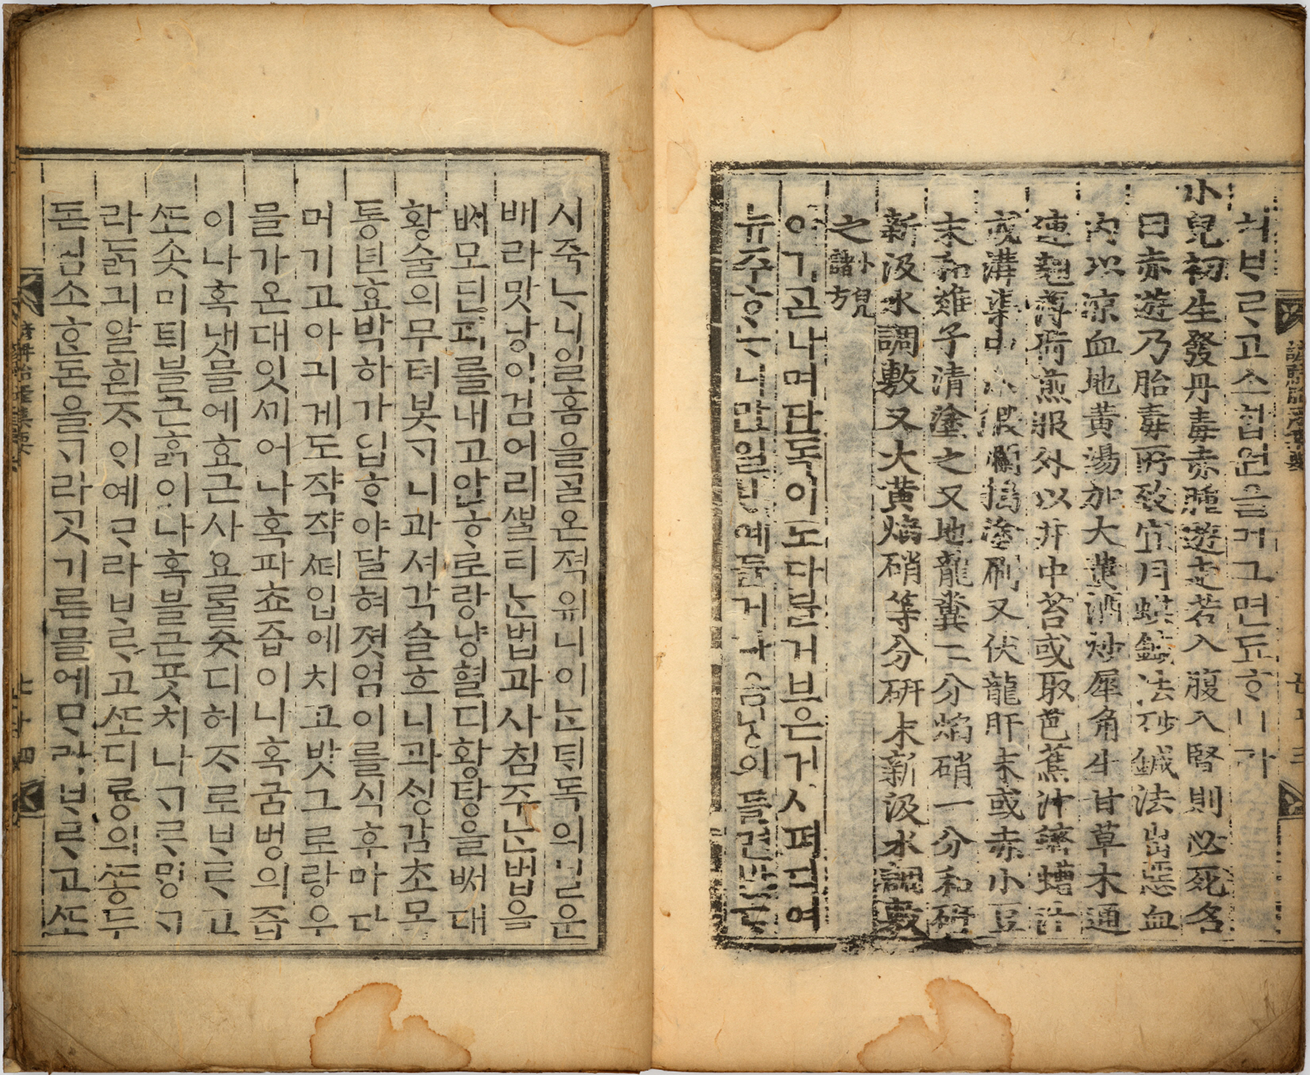 처ᄇᆞᄅᆞ고소협원을머그면됴ᄒᆞ니라
小兒初生發丹毒赤腫遊走若入腹入腎則必死名
曰赤遊乃胎毒所致宜用蜞鍼法砂鍼法出惡血
內以凉血地黃湯加大黃酒炒犀角生甘草木通
連翹薄荷煎服外以井中苔或取芭蕉汁蠐螬汁
或溝渠中小蝦爛搗塗刷又伏龍肝末或赤小豆
末和雞子清塗之又地龍糞二分焰硝一分和硏
新汲水調敷又大黃焰硝等分硏末新汲水調敷
之小兒諸方
아기ᄀᆞᆺ나며단독이도다블거브은거시펴디여
뉴주ᄒᆞᄂᆞ니만일ᄇᆡ예들거나음낭의들면반ᄃᆞ
諺解胎産集要
七十三
시죽ᄂᆞ니일홈을ᄀᆞᆯ온젹유니이ᄂᆞᆫᄐᆡ독의니ᄅᆞ운
배라맛당이검어리ᄲᆞᆯ티ᄂᆞᆫ법과사침주ᄂᆞᆫ법을
ᄡᅥ모딘피를내고안ᄒᆞ로랑냥혈디황탕을ᄡᅥ대
황술의무텨봇ᄀᆞ니과셔각슬흐니과ᄉᆡᆼ감초모
통년효박하가입ᄒᆞ야달혀졋엄이를식후마다
머기고아긔게도쟉쟉ᄡᅧ입에치고밧그로랑우
믈가온대잇ᄭᅵ어나혹파쵸즙이니혹굼벙의즙
이나혹냇믈에효근사요ᄅᆞᆯᄌᆞᆺ디허ᄌᆞ로ᄇᆞᄅᆞ고
ᄯᅩ솟미틔블근흙이나혹블근ᄑᆞᆺ치나ᄀᆞᄅᆞᄆᆡᆼᄀᆞ
라ᄃᆞᆰ긔알흰ᄌᆞ이예ᄆᆞ라ᄇᆞᄅᆞ고ᄯᅩ디룡의ᄯᅩᆼ두
돈념소ᄒᆞᆫ돈을ᄀᆞ라ᄀᆞᆺ기른믈에ᄆᆞ라ᄇᆞᄅᆞ고ᄯᅩ
諺解胎産集要
七十四